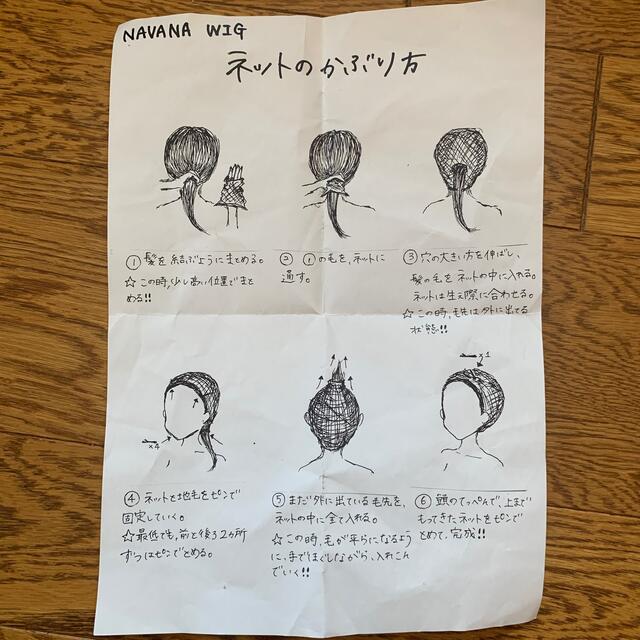 NAVANA WIG
ネットのかぶり方
① 髪を結ぶようにまとめる。
☆ この時、少し高い位置でまと
める!!
② ①の毛を、ネットに
通す。
③ 穴の大きい方を伸ばし、
髪の毛をネットの中に入れる。
ネットは生え際に合わせる。
☆ この時、毛先は外に出てる
状態!!
×4
④ ネットと地毛をピンで
固定していく。
☆ 最低でも、前と後ろ2ヵ所
ずつはピンでとめる。
⑤ まだ外に出ている毛先を、
ネットの中に全て入れる。
☆ この時、毛が平らになるよう
に、手でほぐしながら、入れこん
でいく!!
×1
⑥ 頭のてっぺんで、上まで
もってきたネットをピンで
とめて、完成!!